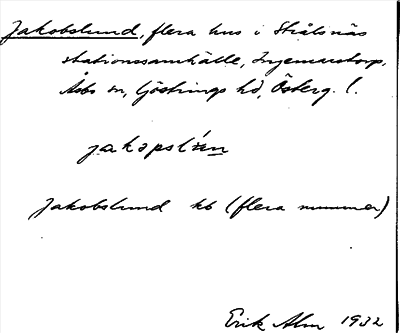 Jakobslund, flera hus i Strålsnäs
stationssamhälle, Ingemarstorp,
Åsbo sn, Göstrings hd, Österg. l.
jakəpslún
Jakobslund kb (flera nummer)
Erik Alm 1932